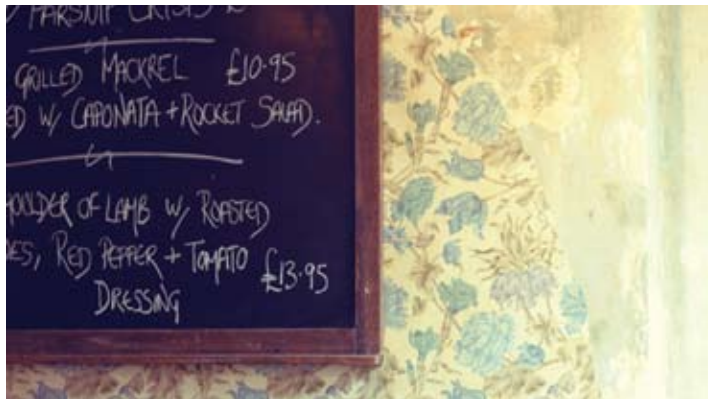 PARSNIP CRISPS
GRILLED MACKREL £10.95
ED W/ CAPONATA + ROCKET SALAD.
OULDER OF LAMB W/ ROASTED
ES, RED PEPPER + TOMATO £13.95
DRESSING